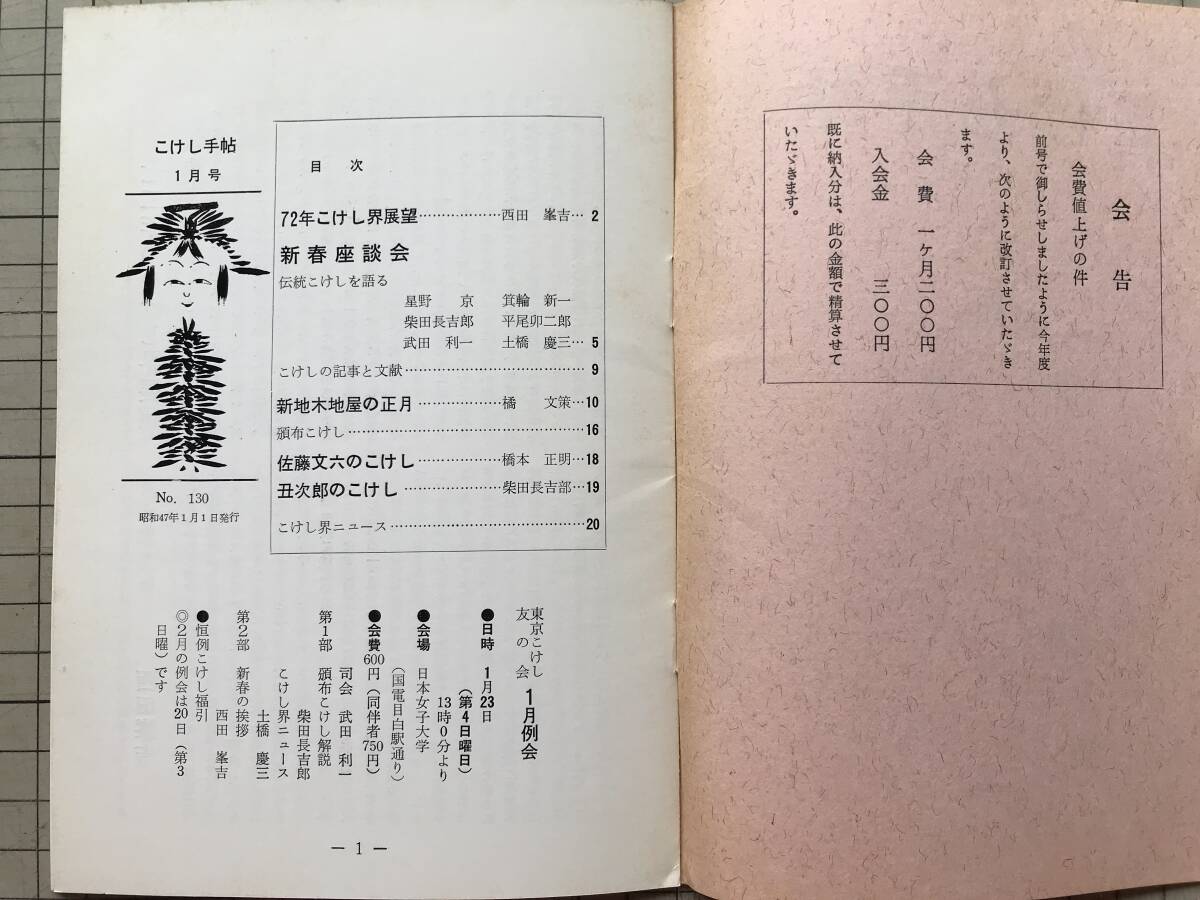 会告
会費値上げの件
前号で御しらせしましたように今年度
より、次のように改訂させていたゞき
ます。
会費 一ケ月二〇〇円
入会金 三〇〇円
既に納入分は、此の金額で精算させて
いたゞきます。
こけし手帖
1月号
No. 130
昭和47年1月1日発行
目次
72年こけし界展望………………西田 峯吉… 2
新春座談会
伝統こけしを語る
星野 京 箕輪 新一
柴田長吉郎 平尾卯二郎
武田 利一 土橋 慶三… 5
こけしの記事と文献……………………………… 9
新地木地屋の正月………………橘 文策…10
頒布こけし………………………………………16
佐藤文六のこけし………………橋本 正明…18
丑次郎のこけし…………………柴田長吉部…19
こけし界ニュース………………………………20
東京こけし
友の会 1月例会
●日時 1月23日
(第4日曜日)
13時0分より
●会場 日本女子大学
(国電目白駅通り)
●会費 600円(同伴者750円)
司会 武田 利一
第1部 頒布こけし解説
柴田長吉郎
こけし界ニュース
土橋 慶三
第2部 新春の挨拶
西田 峯吉
●恒例こけし福引
◎2月の例会は20日(第3
日曜)です
― 1 ―